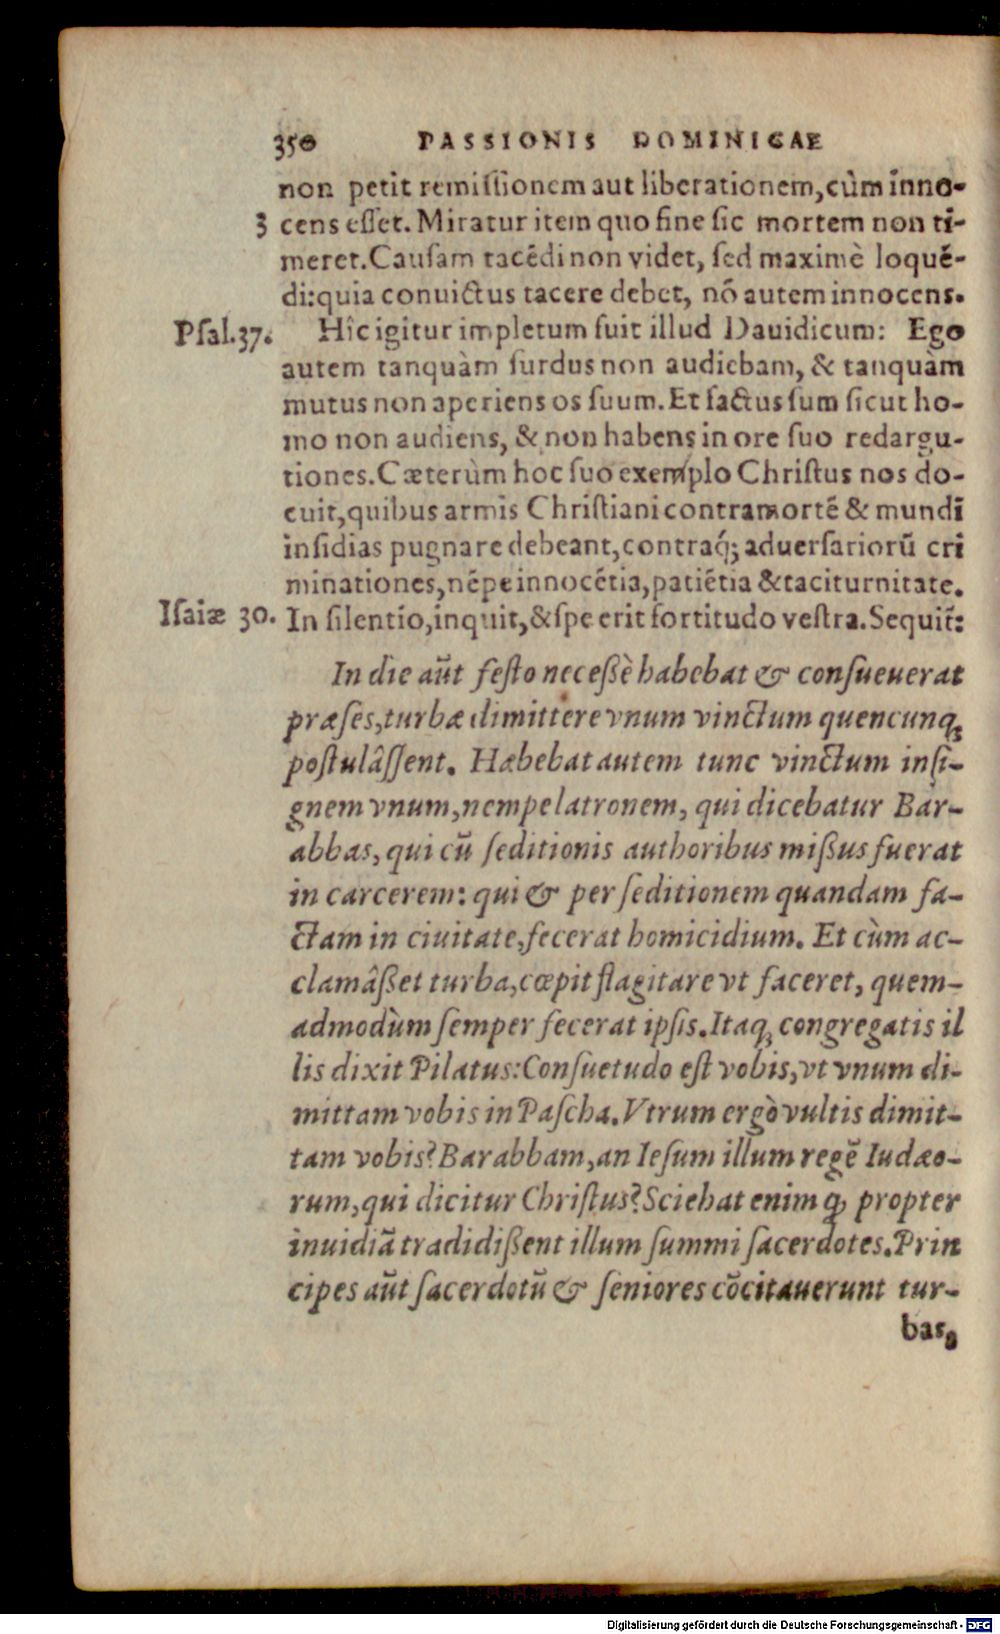 350 PASSIONIS DOMINICAE
non petit remissionem aut liberationem, cùm inno-
3 cens esset. Miratur item quo fine sic mortem non ti-
meret. Causam tacẽdi non videt, sed maximè loquẽ-
di: quia conuictus tacere debet, nõ autem innocens.
Psal. 37. Hîc igitur impletum fuit illud Dauidicum: Ego
autem tanquàm surdus non audiebam, & tanquàm
mutus non aperiens os suum. Et factus sum sicut ho-
mo non audiens, & non habens in ore suo redargu-
tiones. Cæterùm hoc suo exemplo Christus nos do-
cuit, quibus armis Christiani contra mortẽ & mundi
insidias pugnare debeant, contraq́; aduersariorũ cri
minationes, nẽpe innocẽtia, patiẽtia & taciturnitate.
Isaiæ 30. In silentio, inquit, & spe erit fortitudo vestra. Sequit̃:
In die aũt festo neceßè habebat & consueuerat
præses, turbæ dimittere vnum vinctum quencunq;
postulâssent. Habebat autem tunc vinctum insi-
gnem vnum, nempe latronem, qui dicebatur Bar-
abbas, qui cũ seditionis authoribus mißus fuerat
in carcerem: qui & per seditionem quandam fa-
ctam in ciuitate, fecerat homicidium. Et cùm ac-
clamâßet turba, cœpit flagitare vt faceret, quem-
admodùm semper fecerat ipsis. Itaq; congregatis il
lis dixit Pilatus: Consuetudo est vobis, vt vnum di-
mittam vobis in Pascha. Vtrum ergò vultis dimit-
tam vobis? Barabbam, an Iesum illum regẽ Iudæo-
rum, qui dicitur Christus? Sciebat enim ꝙ propter
inuidiã tradidißent illum summi sacerdotes. Prin
cipes aũt sacerdotũ & seniores cõcitauerunt tur-
bas,
Digitalisierung gefördert durch die Deutsche Forschungsgemeinschaft - DFG